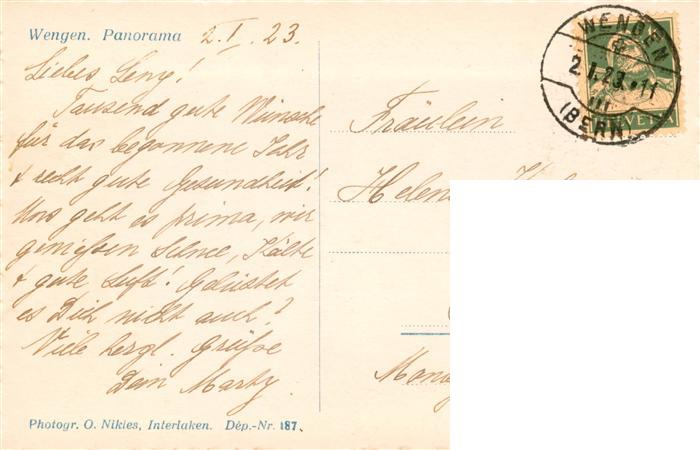 Wengen. Panorama 2.I.23.
Liebes Leny!
Tausend gute Wünsche
für das begonnene Jahr
+ recht gute Gesundheit!
Uns geht es prima, wir
genießen Schnee, Kälte
+ gute Luft! Gelüstet
es Dich nicht auch?
Viele herzl. Grüße
Dein Marty.
Photogr. O. Nikles, Interlaken. Dép.-Nr. 187.
WENGEN
2.I.23.·11
III
(BERN)
HELVETIA
Fräulein